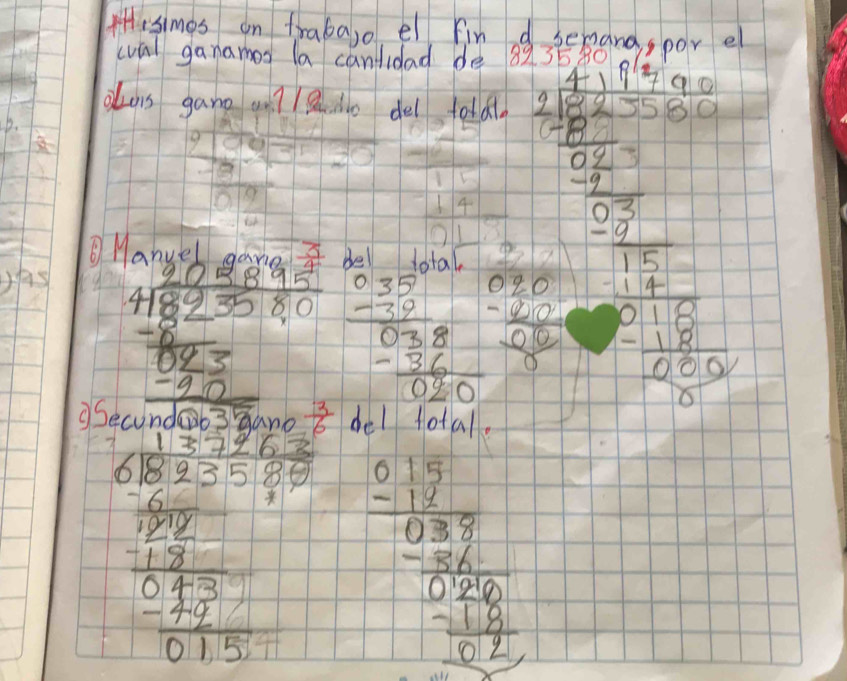 Hisimos un trabajo el Fin d semana, por el
cual ganamos la cantidad de 823580
a) Luis gano 1/2 del total.
419790
2|823580
-8
023
-2
03
-2
15
-14
018
-18
000
0
b) Manuel gano 3/4 del total.
205895
4|823580
-8
023
-20
035
035
-32
038
-36
020
020
-20
00
0
c) Secundino gano 3/6 del total.
137263
6|823580
-6
22
-18
043
-42
015
015
-12
038
-36
020
-18
02